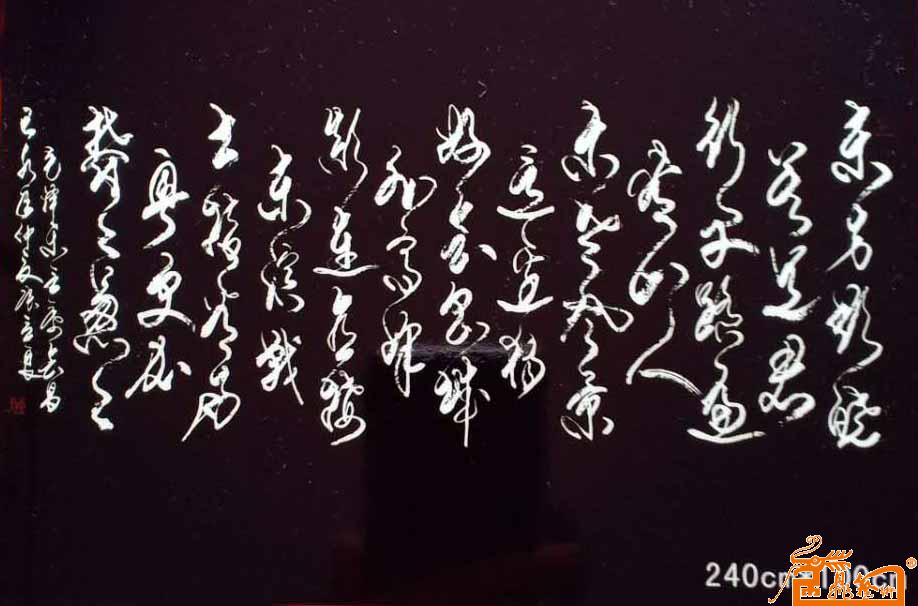 东方欲晓
莫道君
行早踏遍
青山人
未老风景
这边独
好会昌城
外高峰
颠连直接
东溟战
士指看南
粤更加
郁郁葱葱
毛泽东 会昌
年仲夏
240cm*100cm